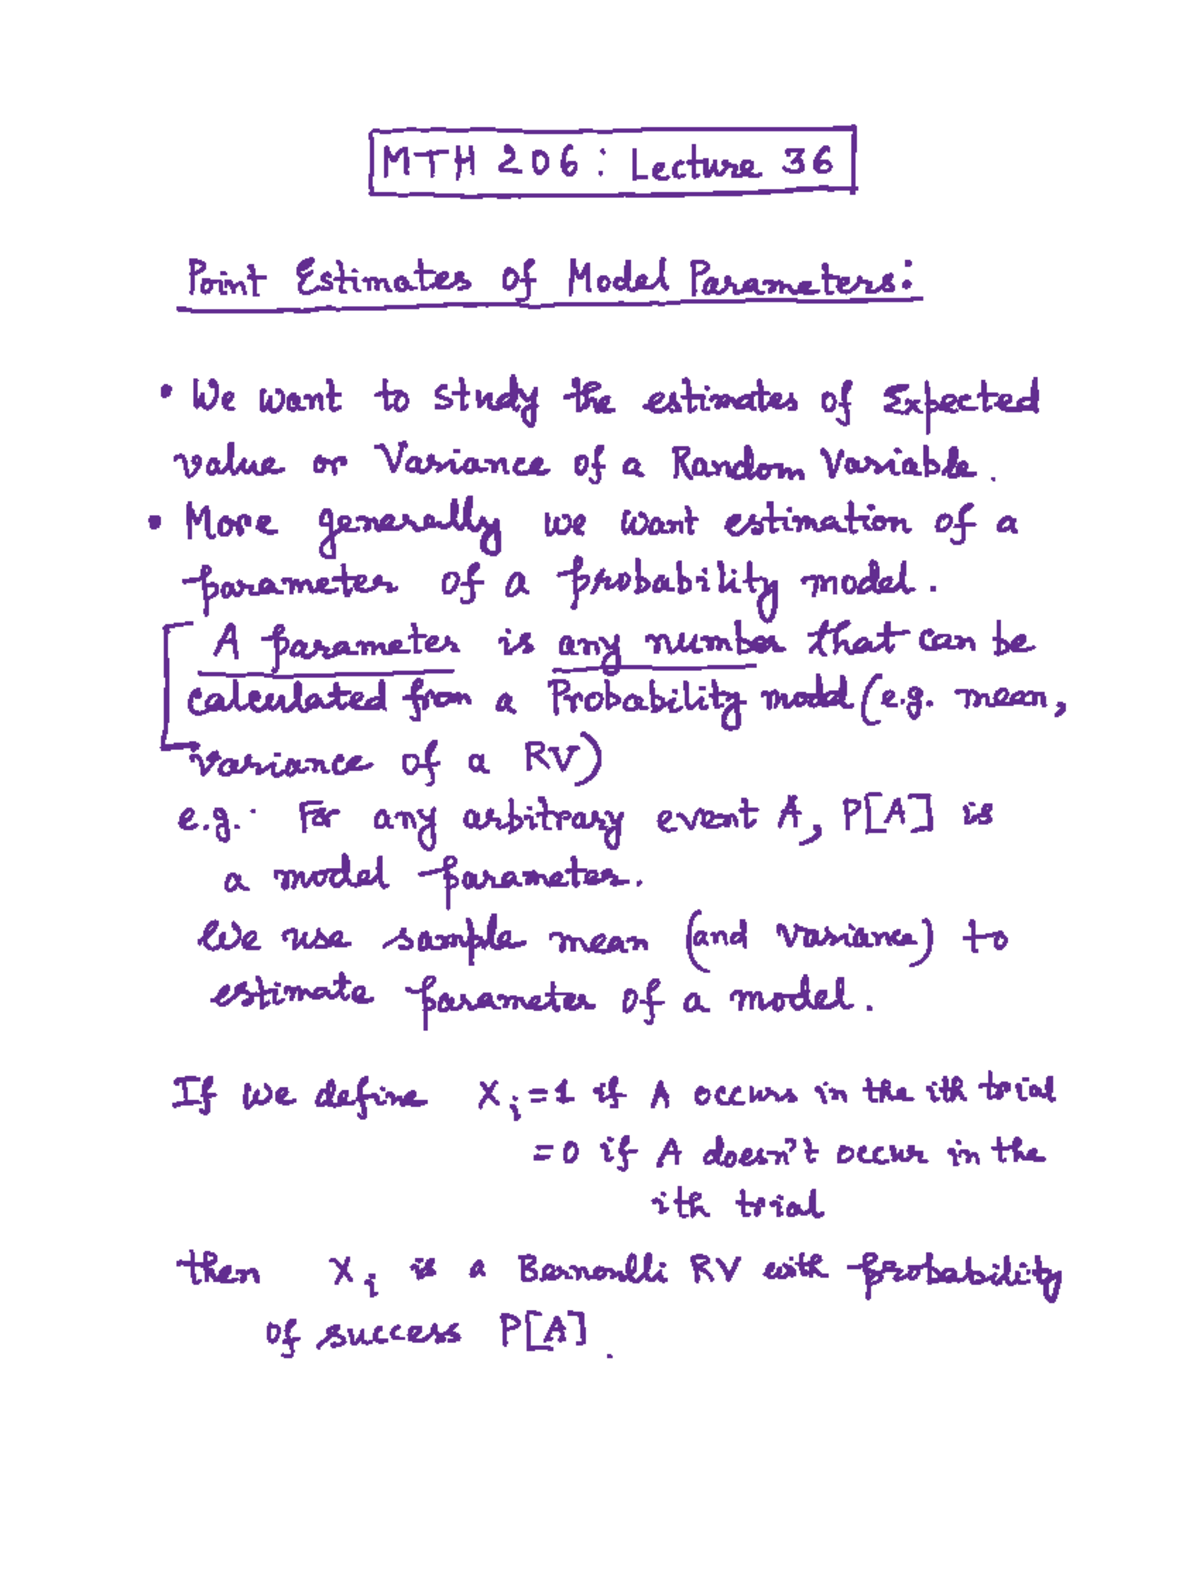 MTH 206 : Lecture 36
Point Estimates of Model Parameters:
• We want to study the estimates of Expected
value or Variance of a Random Variable.
• More generally we want estimation of a
parameter of a probability model.
A parameter is any number that can be
calculated from a Probability model (e.g. mean,
variance of a RV)
e.g.: For any arbitrary event A, P[A] is
a model parameter.
We use sample mean (and variance) to
estimate parameter of a model.
If we define X_i = 1 if A occurs in the ith trial
= 0 if A doesn't occur in the
ith trial
then X_i is a Bernoulli RV with probability
of success P[A].